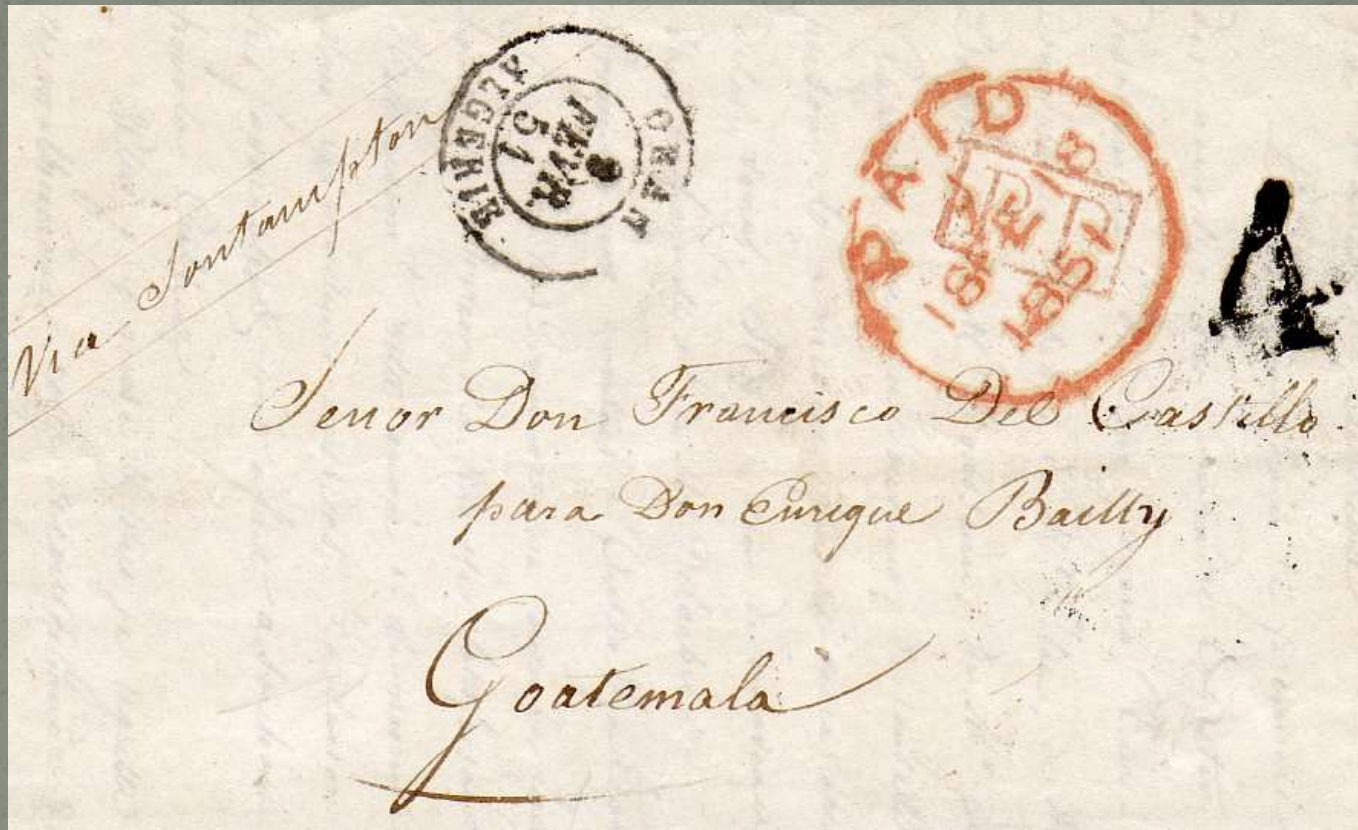 Via Sontampton
ORAN
FEVR.
51
ALGERIE
PAID
PD
1851
4
Senor Don Francisco Del Castillo
para Don Enrique Bailly
Goatemala